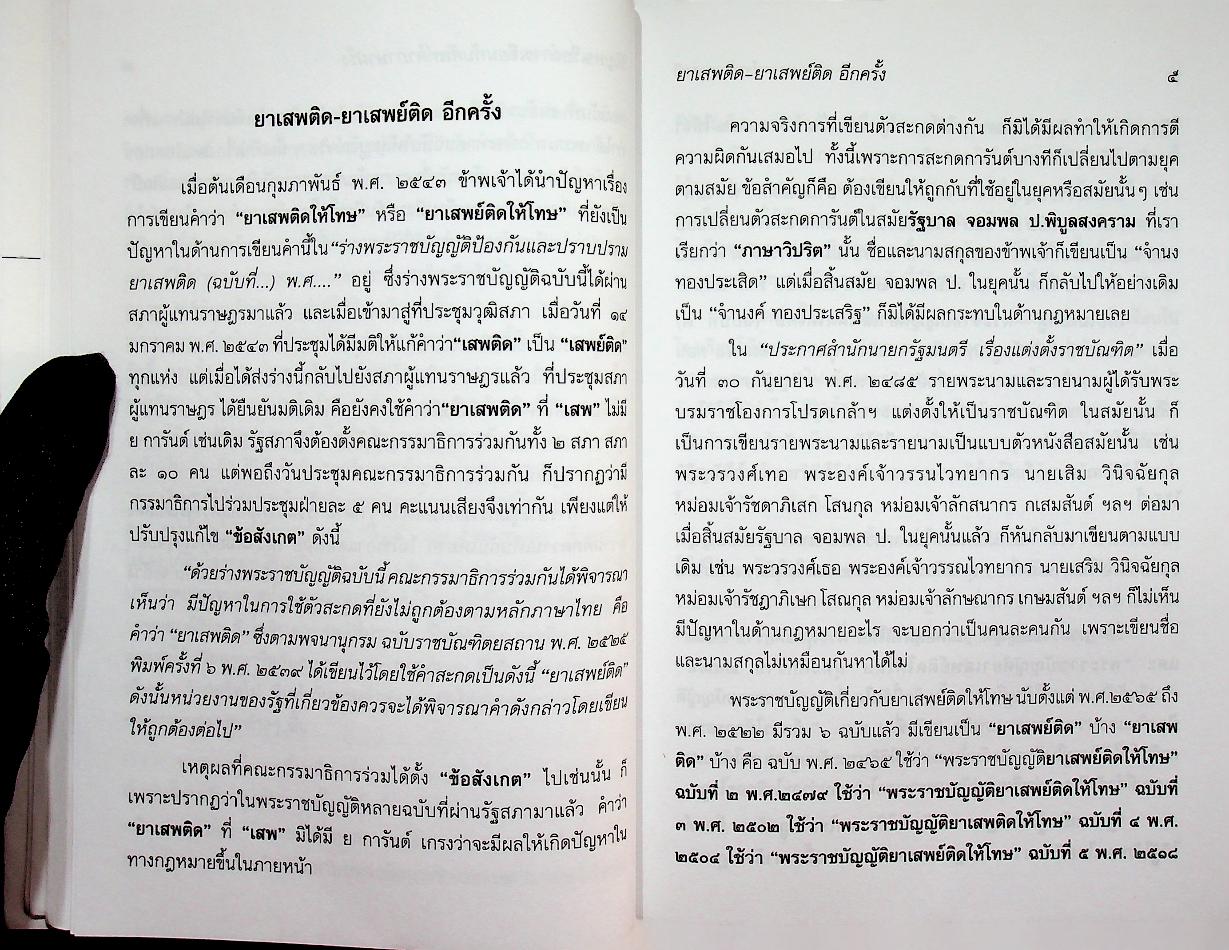 ยาเสพติด-ยาเสพย์ติด อีกครั้ง
เมื่อต้นเดือนกุมภาพันธ์ พ.ศ. ๒๕๔๓ ข้าพเจ้าได้นำปัญหาเรื่อง
การเขียนคำว่า “ยาเสพติดให้โทษ” หรือ “ยาเสพย์ติดให้โทษ” ที่ยังเป็น
ปัญหาในด้านการเขียนคำนี้ใน“ร่างพระราชบัญญัติป้องกันและปราบปราม
ยาเสพติด (ฉบับที่...) พ.ศ....” อยู่ ซึ่งร่างพระราชบัญญัติฉบับนี้ได้ผ่าน
สภาผู้แทนราษฎรมาแล้ว และเมื่อเข้ามาสู่ที่ประชุมวุฒิสภา เมื่อวันที่ ๑๔
มกราคม พ.ศ. ๒๕๔๓ ที่ประชุมได้มีมติให้แก้คำว่า“เสพติด” เป็น “เสพย์ติด”
ทุกแห่ง แต่เมื่อได้ส่งร่างนี้กลับไปยังสภาผู้แทนราษฎรแล้ว ที่ประชุมสภา
ผู้แทนราษฎร ได้ยืนยันมติเดิม คือยังคงใช้คำว่า“ยาเสพติด” ที่ “เสพ” ไม่มี
ย การันต์ เช่นเดิม รัฐสภาจึงต้องตั้งคณะกรรมาธิการร่วมกันทั้ง ๒ สภา สภา
ละ ๑๐ คน แต่พอถึงวันประชุมคณะกรรมาธิการร่วมกัน ก็ปรากฏว่ามี
กรรมาธิการไปร่วมประชุมฝ่ายละ ๕ คน คะแนนเสียงจึงเท่ากัน เพียงแต่ให้
ปรับปรุงแก้ไข “ข้อสังเกต” ดังนี้
“ด้วยร่างพระราชบัญญัติฉบับนี้ คณะกรรมาธิการร่วมกันได้พิจารณา
เห็นว่า มีปัญหาในการใช้ตัวสะกดที่ยังไม่ถูกต้องตามหลักภาษาไทย คือ
คำว่า “ยาเสพติด” ซึ่งตามพจนานุกรม ฉบับราชบัณฑิตยสถาน พ.ศ. ๒๕๒๕
พิมพ์ครั้งที่ ๖ พ.ศ. ๒๕๓๙ ได้เขียนไว้โดยใช้คำสะกดเป็นดังนี้ “ยาเสพย์ติด”
ดังนั้นหน่วยงานของรัฐที่เกี่ยวข้องควรจะได้พิจารณาคำดังกล่าวโดยเขียน
ให้ถูกต้องต่อไป”
เหตุผลที่คณะกรรมาธิการร่วมได้ตั้ง “ข้อสังเกต” ไปเช่นนั้น ก็
เพราะปรากฏว่าในพระราชบัญญัติหลายฉบับที่ผ่านรัฐสภามาแล้ว คำว่า
“ยาเสพติด” ที่ “เสพ” มิได้มี ย การันต์ เกรงว่าจะมีผลให้เกิดปัญหาใน
ทางกฎหมายขึ้นในภายหน้า
ยาเสพติด-ยาเสพย์ติด อีกครั้ง ๕
ความจริงการที่เขียนตัวสะกดต่างกัน ก็มิได้มีผลทำให้เกิดการตี
ความผิดกันเสมอไป ทั้งนี้เพราะการสะกดการันต์บางทีก็เปลี่ยนไปตามยุค
ตามสมัย ข้อสำคัญก็คือ ต้องเขียนให้ถูกกับที่ใช้อยู่ในยุคหรือสมัยนั้นๆ เช่น
การเปลี่ยนตัวสะกดการันต์ในสมัยรัฐบาล จอมพล ป.พิบูลสงคราม ที่เรา
เรียกว่า “ภาษาวิปริต” นั้น ชื่อและนามสกุลของข้าพเจ้าก็เขียนเป็น “จำนง
ทองประเสิด” แต่เมื่อสิ้นสมัย จอมพล ป. ในยุคนั้น ก็กลับไปให้อย่างเดิม
เป็น “จำนงค์ ทองประเสริฐ” ก็มิได้มีผลกระทบในด้านกฎหมายเลย
ใน “ประกาศสำนักนายกรัฐมนตรี เรื่องแต่งตั้งราชบัณฑิต” เมื่อ
วันที่ ๓๐ กันยายน พ.ศ. ๒๔๘๕ รายพระนามและรายนามผู้ได้รับพระ
บรมราชโองการโปรดเกล้าฯ แต่งตั้งให้เป็นราชบัณฑิต ในสมัยนั้น ก็
เป็นการเขียนรายพระนามและรายนามเป็นแบบตัวหนังสือสมัยนั้น เช่น
พระวรวงศ์เทอ พระองค์เจ้าวรรนไวทยากร นายเสิม วินิจฉัยกุล
หม่อมเจ้ารัชดาภิเสก โสนกุล หม่อมเจ้าลักสนากร กเสมสันต์ ฯลฯ ต่อมา
เมื่อสิ้นสมัยรัฐบาล จอมพล ป. ในยุคนั้นแล้ว ก็หันกลับมาเขียนตามแบบ
เดิม เช่น พระวรวงศ์เธอ พระองค์เจ้าวรรณไวทยากร นายเสริม วินิจฉัยกุล
หม่อมเจ้ารัชฎาภิเษก โสณกุล หม่อมเจ้าลักษณากร เกษมสันต์ ฯลฯ ก็ไม่เห็น
มีปัญหาในด้านกฎหมายอะไร จะบอกว่าเป็นคนละคนกัน เพราะเขียนชื่อ
และนามสกุลไม่เหมือนกันหาได้ไม่
พระราชบัญญัติเกี่ยวกับยาเสพย์ติดให้โทษ นับตั้งแต่ พ.ศ.๒๕๖๕ ถึง
พ.ศ. ๒๕๒๒ มีรวม ๖ ฉบับแล้ว มีเขียนเป็น “ยาเสพย์ติด” บ้าง “ยาเสพ
ติด” บ้าง คือ ฉบับ พ.ศ. ๒๔๖๕ ใช้ว่า “พระราชบัญญัติยาเสพย์ติดให้โทษ”
ฉบับที่ ๒ พ.ศ.๒๔๗๙ ใช้ว่า “พระราชบัญญัติยาเสพย์ติดให้โทษ” ฉบับที่
๓ พ.ศ. ๒๕๐๒ ใช้ว่า “พระราชบัญญัติยาเสพติดให้โทษ” ฉบับที่ ๔ พ.ศ.
๒๕๐๔ ใช้ว่า “พระราชบัญญัติยาเสพย์ติดให้โทษ” ฉบับที่ ๕ พ.ศ. ๒๕๑๘